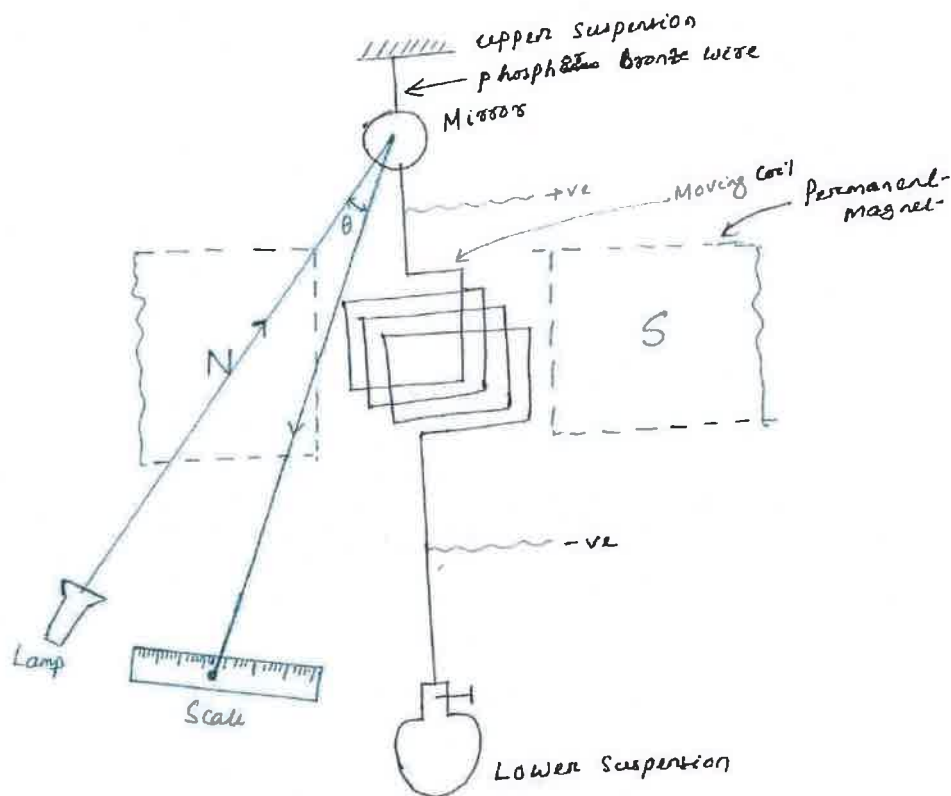 upper suspention
phosphor Bronze wire
Mirror
+ve
Moving coil
Permanent
magnet
θ
N
S
-ve
Lamp
Scale
Lower suspention